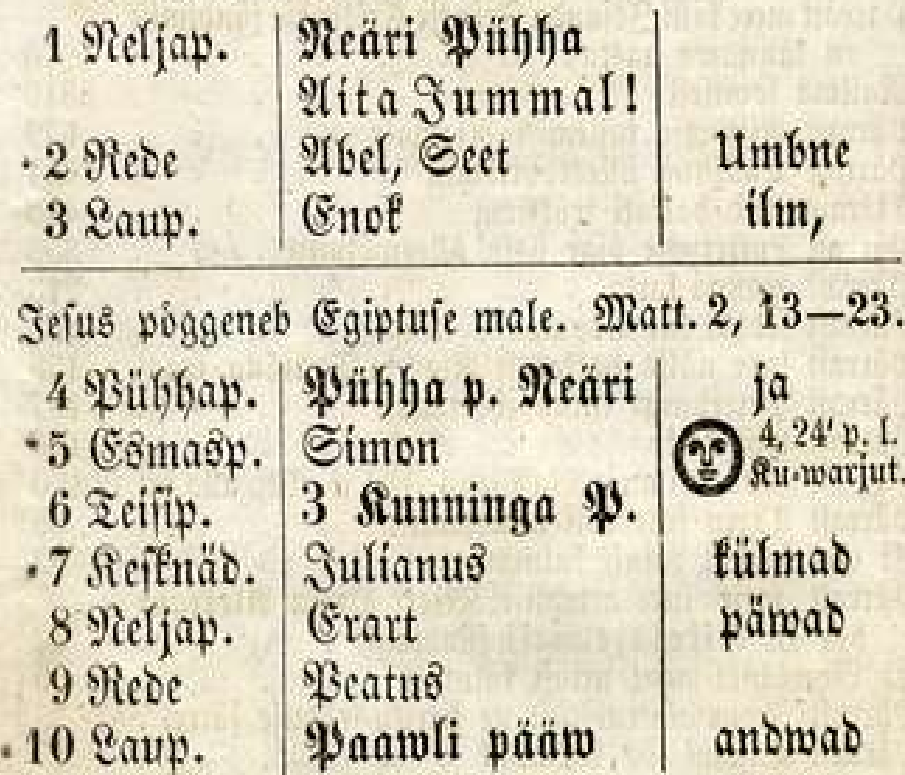 1 Neljap. Neäri Pühha
Aita Jummal!
2 Rede Abel, Seet Umbne
3 Laup. Enok ilm,
Jesus pöggeneb Egiptuse male. Matt. 2, 13—23.
4 Pühhap. Pühha p. Neäri ja
5 Esmasp. Simon 4, 24' p. l.
Ku-warjut.
6 Teisip. 3 Kunninga P.
7 Kesknäd. Julianus külmad
8 Neljap. Erart päwad
9 Rede Peatus
10 Laup. Paawli pääw andwad